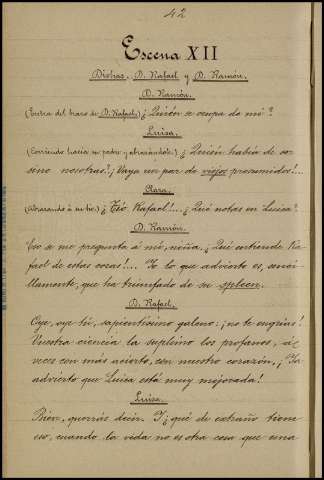 42
Escena XII
Dichas, D. Rafael y D. Ramón.
D. Ramón.
(Entra del brazo de D. Rafael.) ¿Quién se ocupa de mí?
Luisa.
(Corriendo hacia su padre y abrazándole.) ¿Quién había de ser
sino nosotras? ¡Vaya un par de viejos presumidos!...
Clara.
(Abrazando á su tío.) ¡Tío Rafael!... ¿Qué notas en Luisa?
D. Ramón.
Eso se me pregunta á mí, niña. ¡Qué entiende Ra-
fael de estas cosas!... Yo lo que advierto es, senci-
llamente, que ha triunfado de su spleen.
D. Rafael.
Oye, oye tú, sapientísimo galeno: ¡no te engrías!
Vuestra ciencia la suplimos los profanos, á
veces con más acierto, con nuestro corazón. ¡Ya
advierto que Luisa está muy mejorada!
Luisa.
Bien, querrás decir. Y ¿qué de extraño tiene
eso, cuando la vida no es otra cosa que una